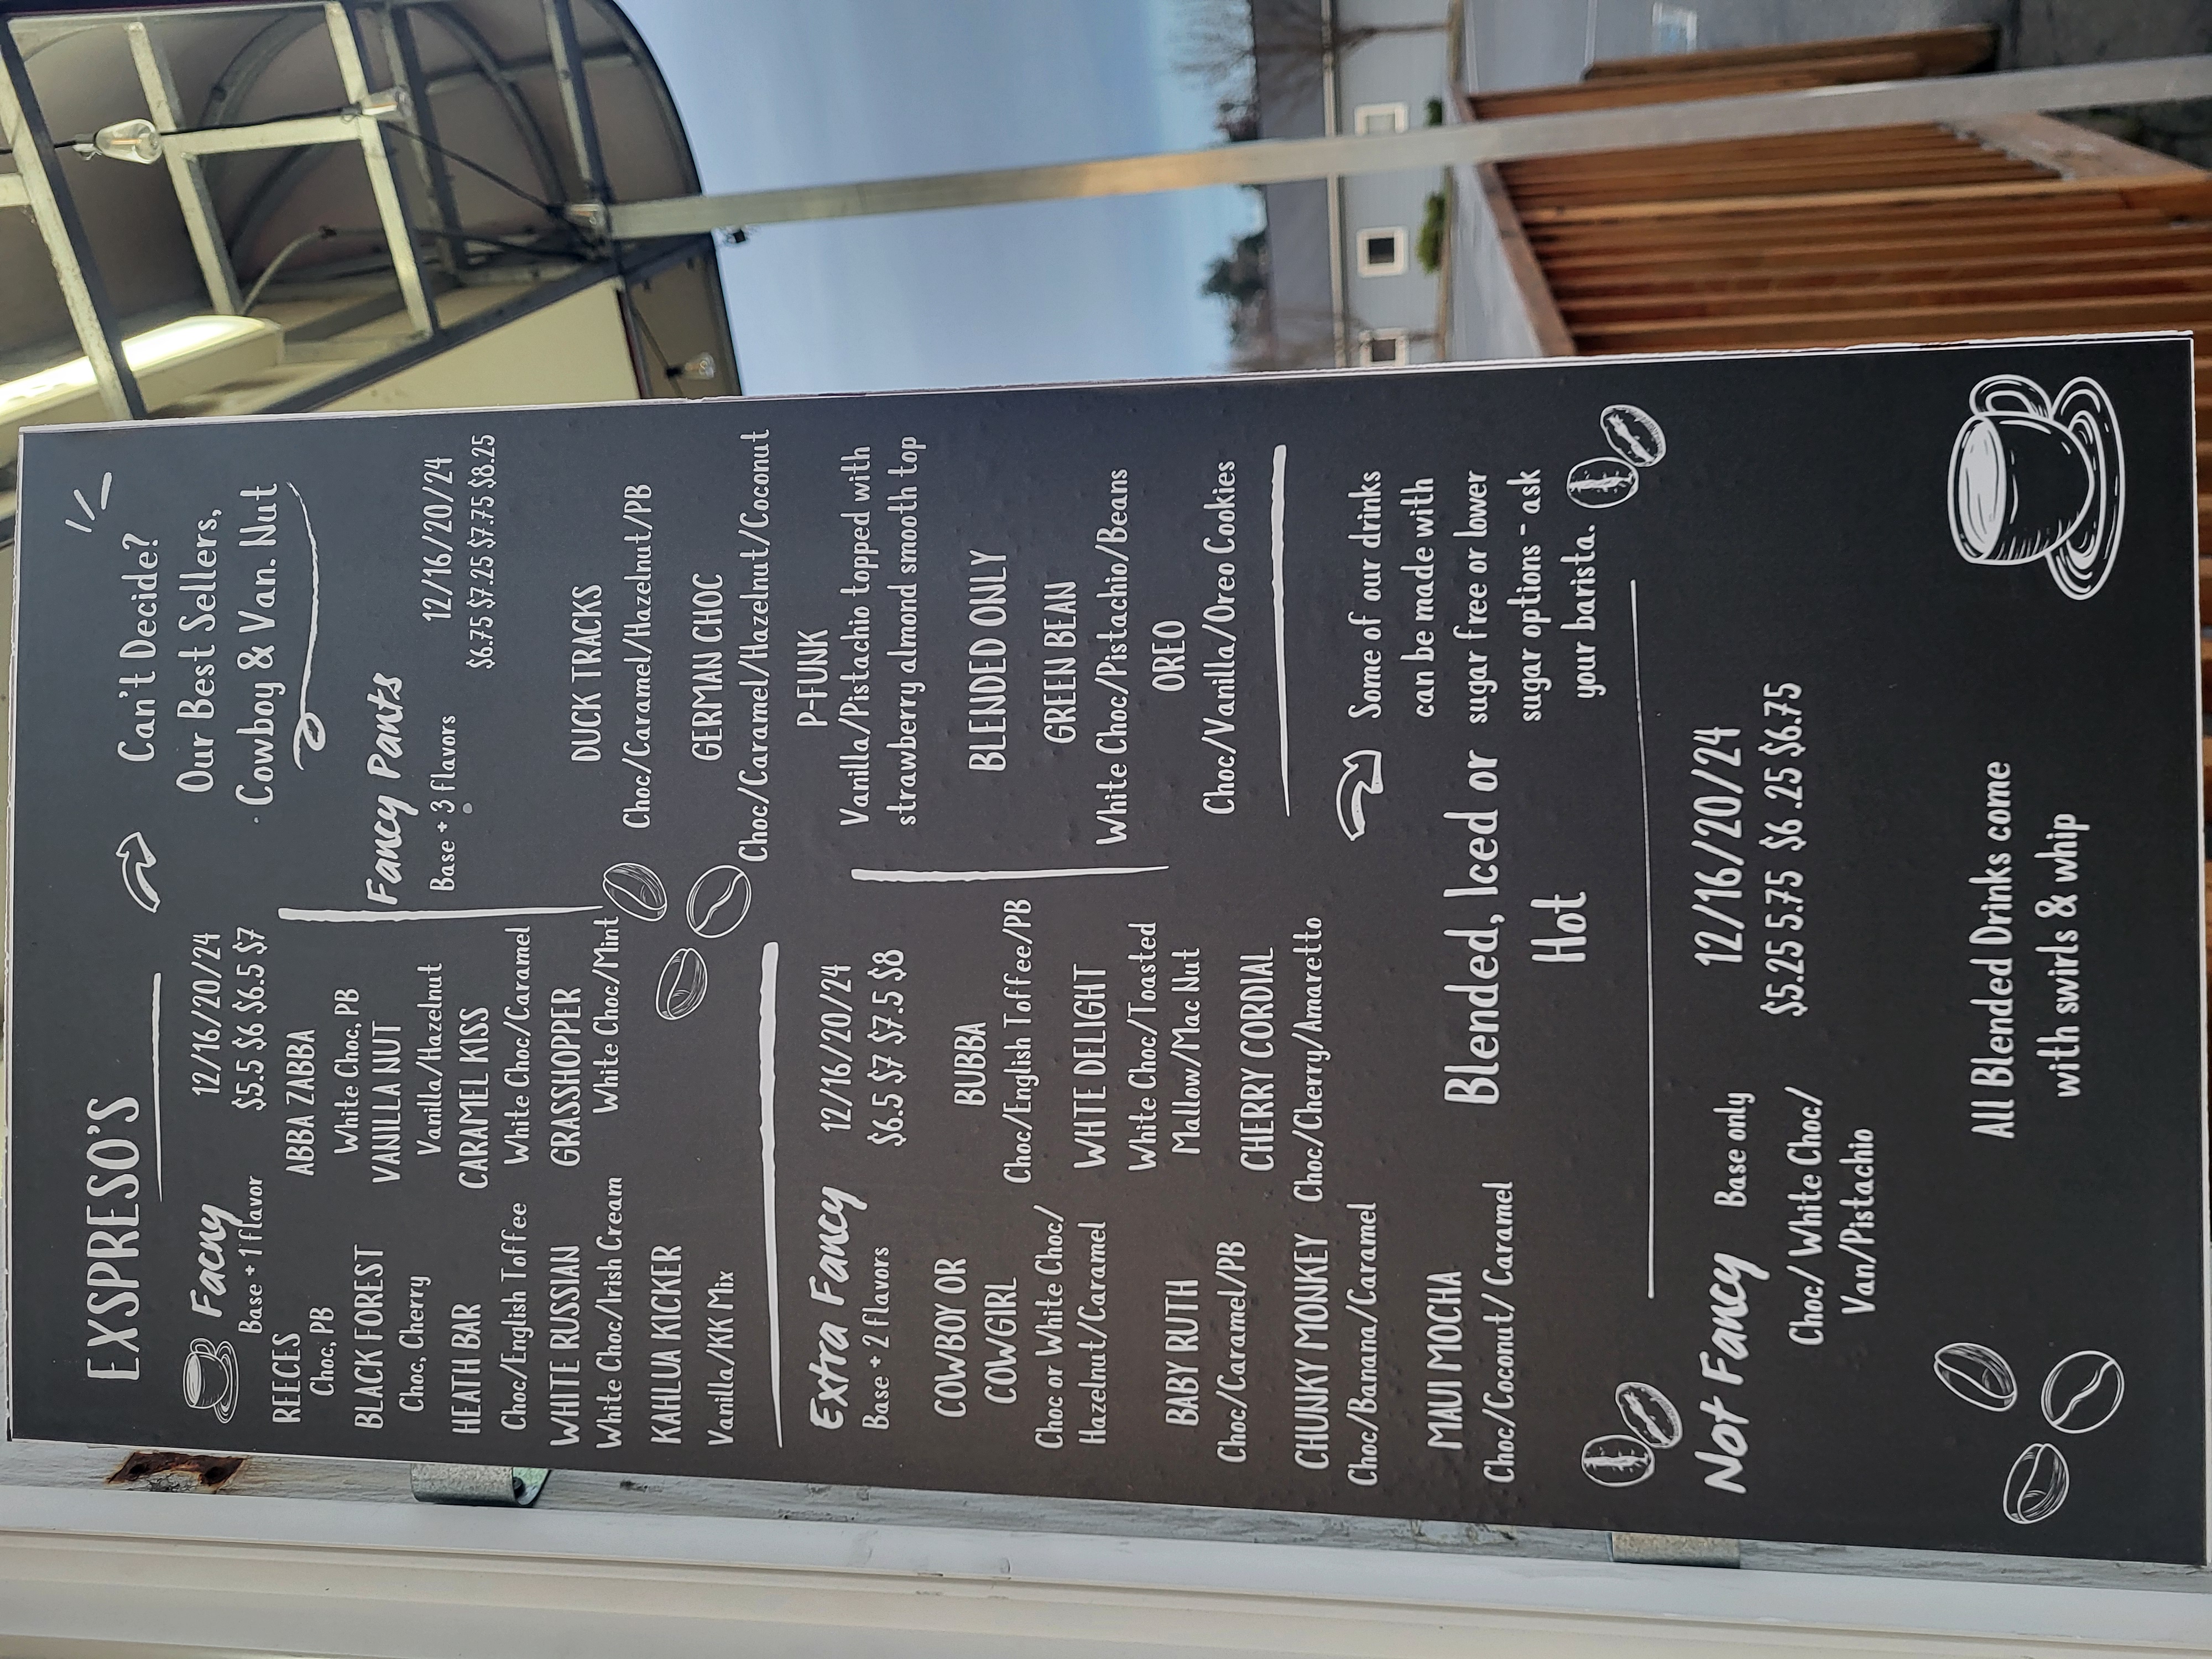 EXSPRESO'S
Can't Decide?
Our Best Sellers,
Cowboy & Van. Nut
Facny
Base + 1 flavor
12/16/20/24
$5.5 $6 $6.5 $7
REECES
Choc, PB
BLACK FOREST
Choc, Cherry
HEATH BAR
Choc/English Toffee
WHITE RUSSIAN
White Choc/Irish Cream
KAHLUA KICKER
Vanilla/KK Mix
ABBA ZABBA
White Choc, PB
VANILLA NUT
Vanilla/Hazelnut
CARAMEL KISS
White Choc/Caramel
GRASSHOPPER
White Choc/Mint
Fancy Pants
Base + 3 flavors
12/16/20/24
$6.75 $7.25 $7.75 $8.25
DUCK TRACKS
Choc/Caramel/Hazelnut/PB
GERMAN CHOC
Choc/Caramel/Hazelnut/Coconut
P-FUNK
Vanilla/Pistachio topped with
strawberry almond smooth top
BLENDED ONLY
GREEN BEAN
White Choc/Pistachio/Beans
OREO
Choc/Vanilla/Oreo Cookies
Extra Fancy
Base + 2 flavors
12/16/20/24
$6.5 $7 $7.5 $8
COWBOY OR
COWGIRL
Choc or White Choc/
Hazelnut/Caramel
BABY RUTH
Choc/Caramel/PB
CHUNKY MONKEY
Choc/Banana/Caramel
MAUI MOCHA
Choc/Coconut/ Caramel
BUBBA
Choc/English Toffee/PB
WHITE DELIGHT
White Choc/Toasted
Mallow/Mac Nut
CHERRY CORDIAL
Choc/Cherry/Amaretto
Some of our drinks
can be made with
sugar free or lower
sugar options - ask
your barista.
Blended, Iced or
Hot
Not Fancy
Base only
12/16/20/24
$5.25 5.75 $6 .25 $6.75
Choc/ White Choc/
Van/Pistachio
All Blended Drinks come
with swirls & whip